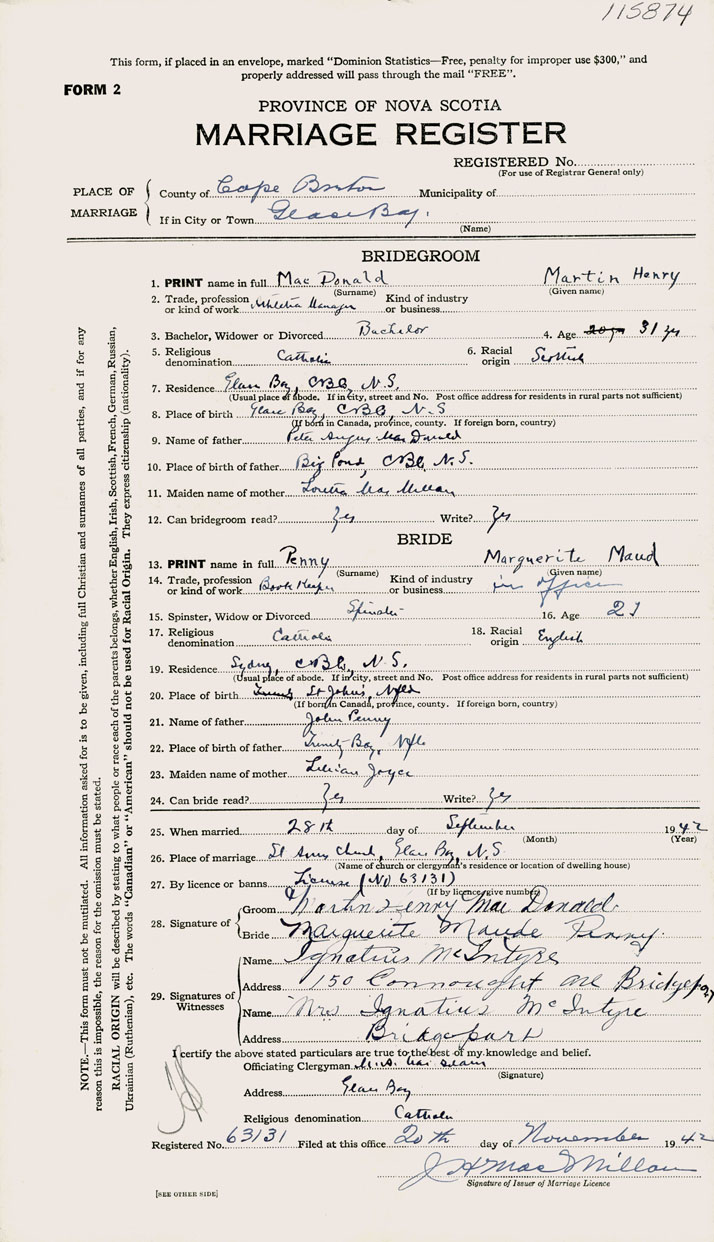 115874
This form, if placed in an envelope, marked "Dominion Statistics—Free, penalty for improper use $300," and
properly addressed will pass through the mail "FREE".
FORM 2
PROVINCE OF NOVA SCOTIA
MARRIAGE REGISTER
REGISTERED No.
(For use of Registrar General only)
PLACE OF MARRIAGE
County of Cape Breton Municipality of
If in City or Town Glace Bay.
(Name)
BRIDEGROOM
1. PRINT name in full Mac Donald Martin Henry
(Surname) (Given name)
2. Trade, profession or kind of work Manager Kind of industry or business
3. Bachelor, Widower or Divorced Bachelor 4. Age 31 yrs
5. Religious denomination Catholic 6. Racial origin Scottish
7. Residence Glace Bay, CBC, N.S.
(Usual place of abode. If in city, street and No. Post office address for residents in rural parts not sufficient)
8. Place of birth Glace Bay, CBC, N.S
(If born in Canada, province, county. If foreign born, country)
9. Name of father Peter Angus Mac Donald
10. Place of birth of father Big Pond, CBC, N.S.
11. Maiden name of mother Loretta Mac Millan
12. Can bridegroom read? Yes Write? Yes
BRIDE
13. PRINT name in full Penny Marguerite Maud
(Surname) (Given name)
14. Trade, profession or kind of work Book Keeper Kind of industry or business in office
15. Spinster, Widow or Divorced Spinster 16. Age 21
17. Religious denomination Catholic 18. Racial origin English
19. Residence Sydney, CBC, N.S.
(Usual place of abode. If in city, street and No. Post office address for residents in rural parts not sufficient)
20. Place of birth St John's, Nfld
(If born in Canada, province, county. If foreign born, country)
21. Name of father John Penny
22. Place of birth of father Trinity Bay, Nfld
23. Maiden name of mother Lillian Joyce
24. Can bride read? Yes Write? Yes
25. When married 28th day of September 1942
(Month) (Year)
26. Place of marriage St Anns Church, Glace Bay, N.S.
(Name of church or clergyman's residence or location of dwelling house)
27. By licence or banns License (No 63131)
(If by licence, give number)
28. Signature of
Groom Martin Henry Mac Donald
Bride Marguerite Maude Penny
29. Signatures of Witnesses
Name Ignatius McIntyre
Address 150 Connought Ave Bridgeport
Name Mrs Ignatius McIntyre
Address Bridgeport
I certify the above stated particulars are true to the best of my knowledge and belief.
Officiating Clergyman
(Signature)
Address Glace Bay
Religious denomination Catholic
Registered No. 63131 Filed at this office 20th day of November 1942
J H MacMillan
Signature of Issuer of Marriage Licence
[SEE OTHER SIDE]
NOTE.—This form must not be mutilated. All information asked for is to be given, including full Christian and surnames of all parties, and if for any
reason this is impossible, the reason for the omission must be stated.
RACIAL ORIGIN will be described by stating to what people or race each of the parents belongs, whether English, Irish, Scottish, French, German, Russian,
Ukrainian (Ruthenian), etc. The words "Canadian" or "American" should not be used for Racial Origin. They express citizenship (nationality).